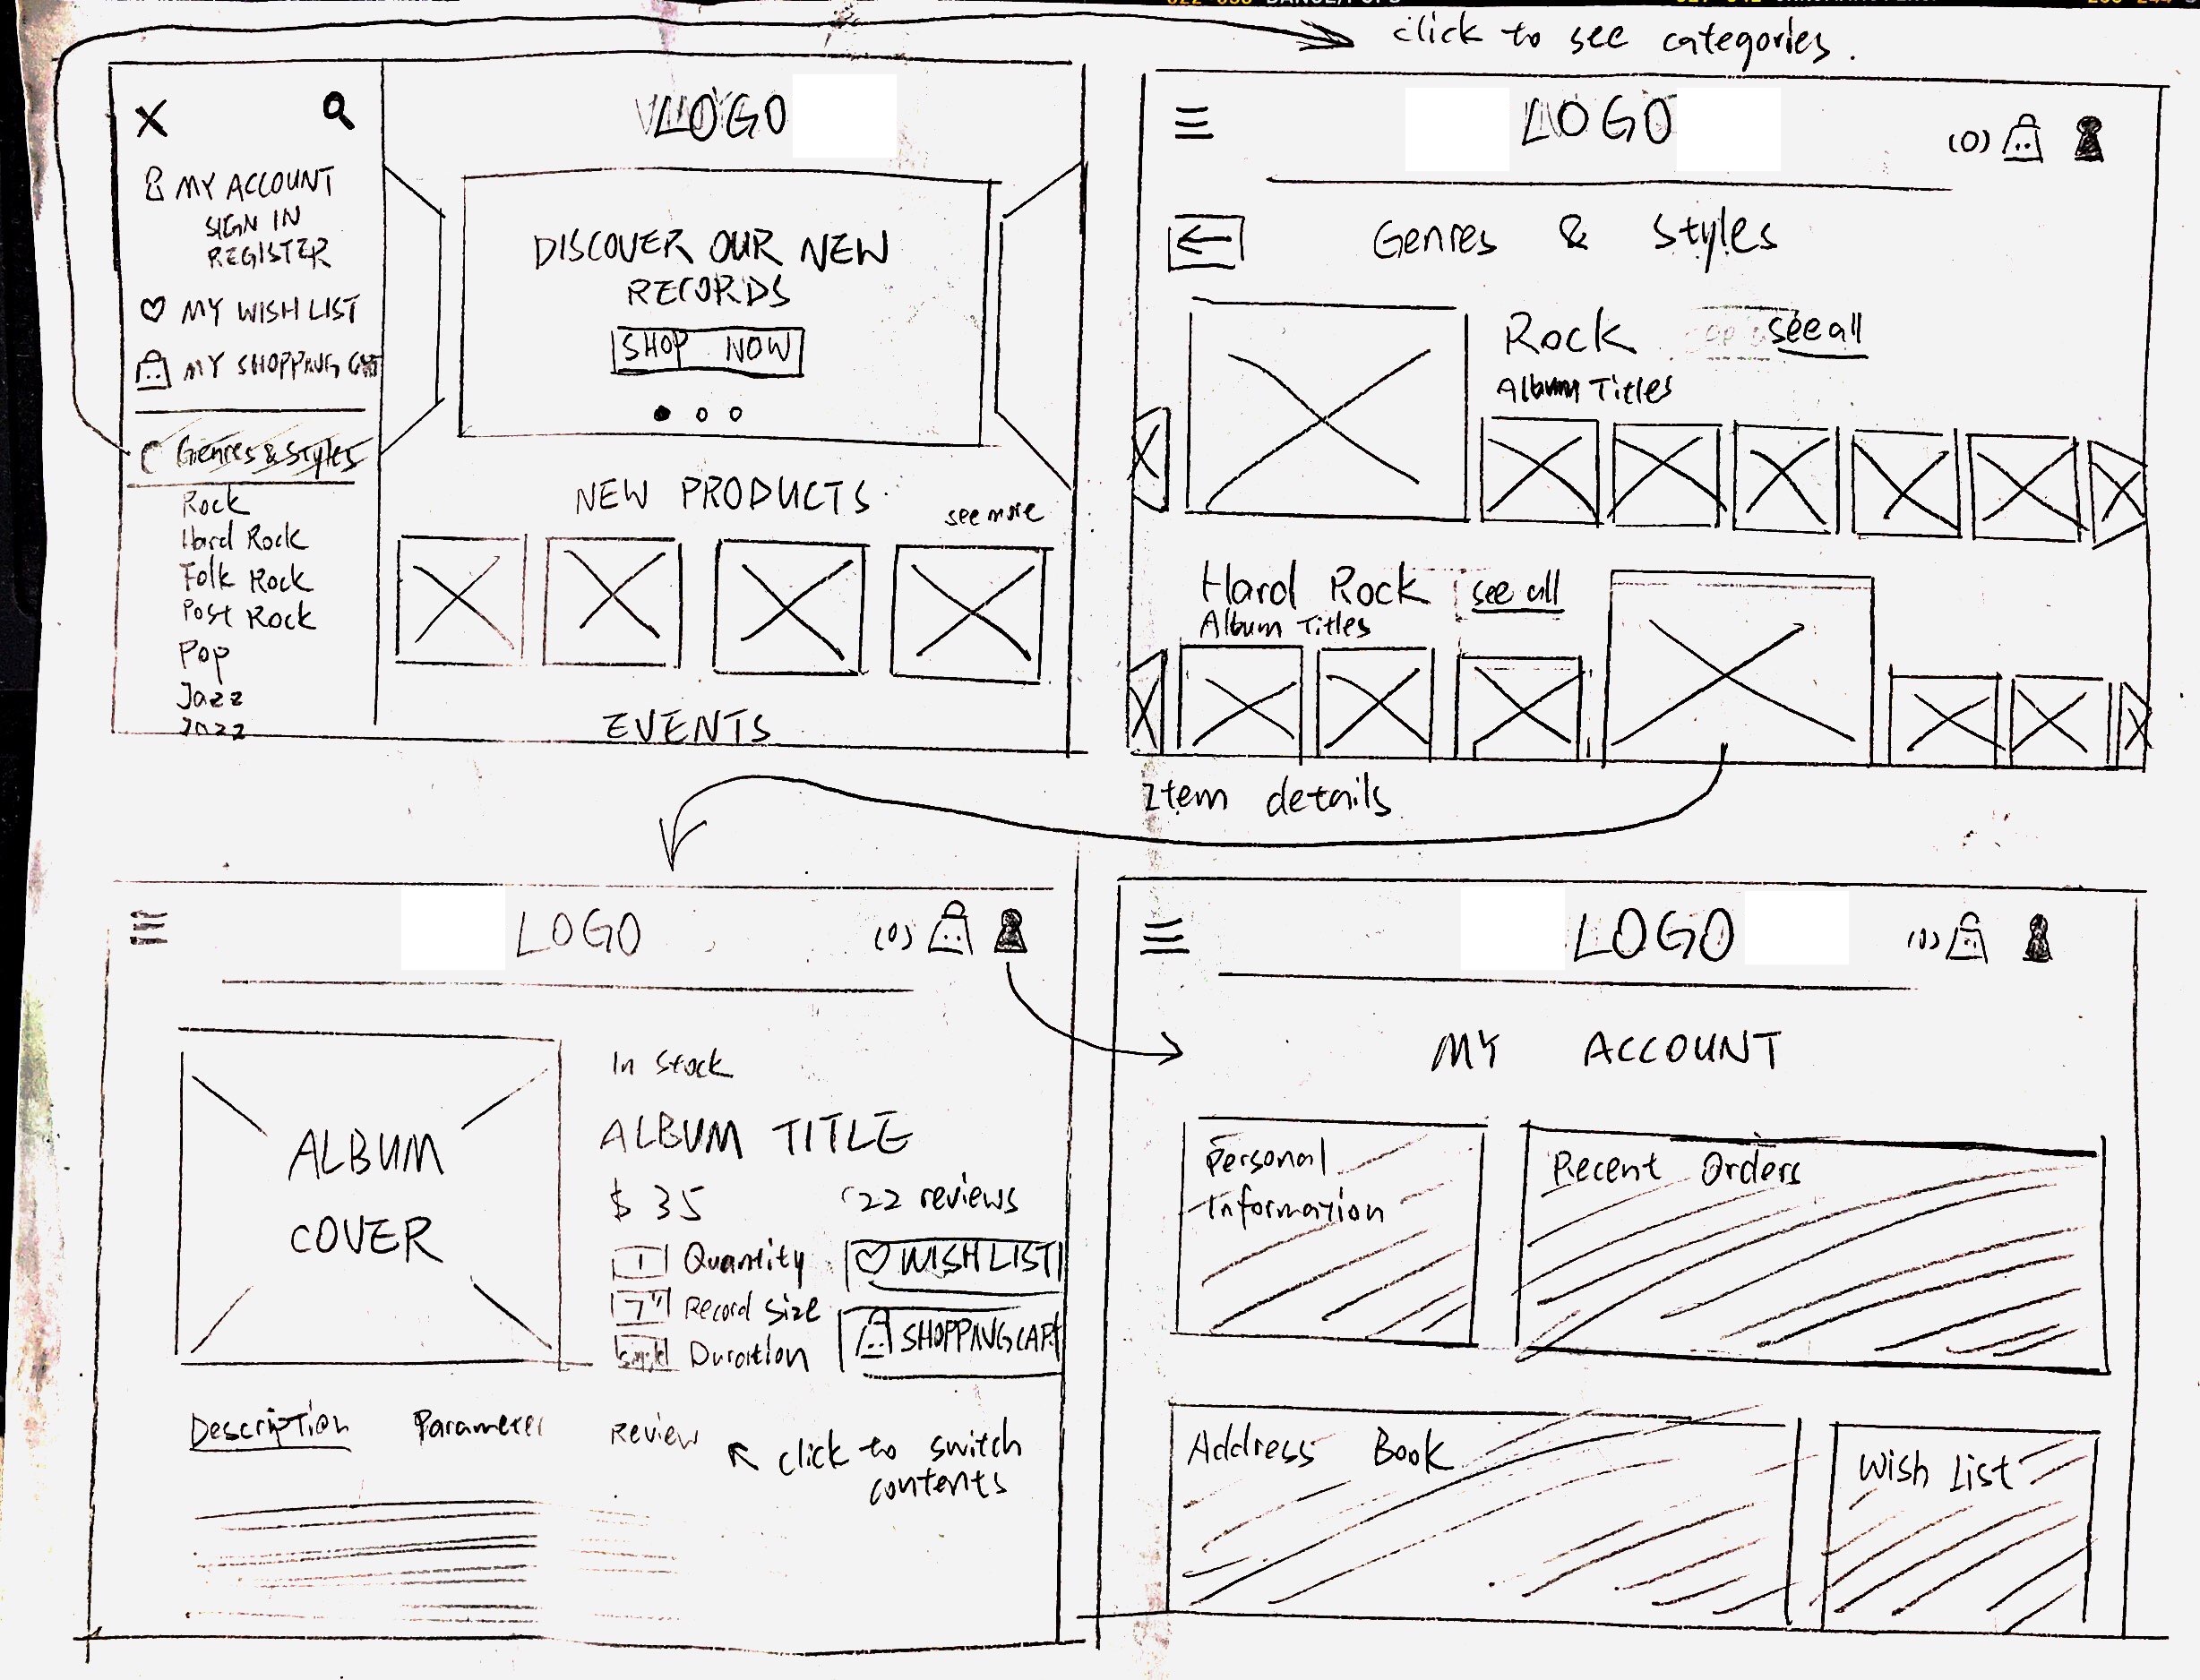 click to see categories.
LOGO
MY ACCOUNT
SIGN IN
REGISTER
MY WISH LIST
MY SHOPPING
Genres & Styles
Rock
Hard Rock
Folk Rock
Post Rock
Pop
Jazz
Jazz
DISCOVER OUR NEW
RECORDS
SHOP NOW
NEW PRODUCTS
see more
EVENTS
LOGO
(0)
Genres & Styles
Rock see all
Album Titles
Hard Rock see all
Album Titles
Item details
LOGO
(0)
ALBUM
COVER
In Stock
ALBUM TITLE
$ 35 22 reviews
1 Quantity
WISH LIST
7" Record Size
SHOPPING CART
Duration
Description Parameter Review
click to switch
contents
LOGO
(0)
MY ACCOUNT
Personal
Information
Recent Orders
Address Book
Wish List